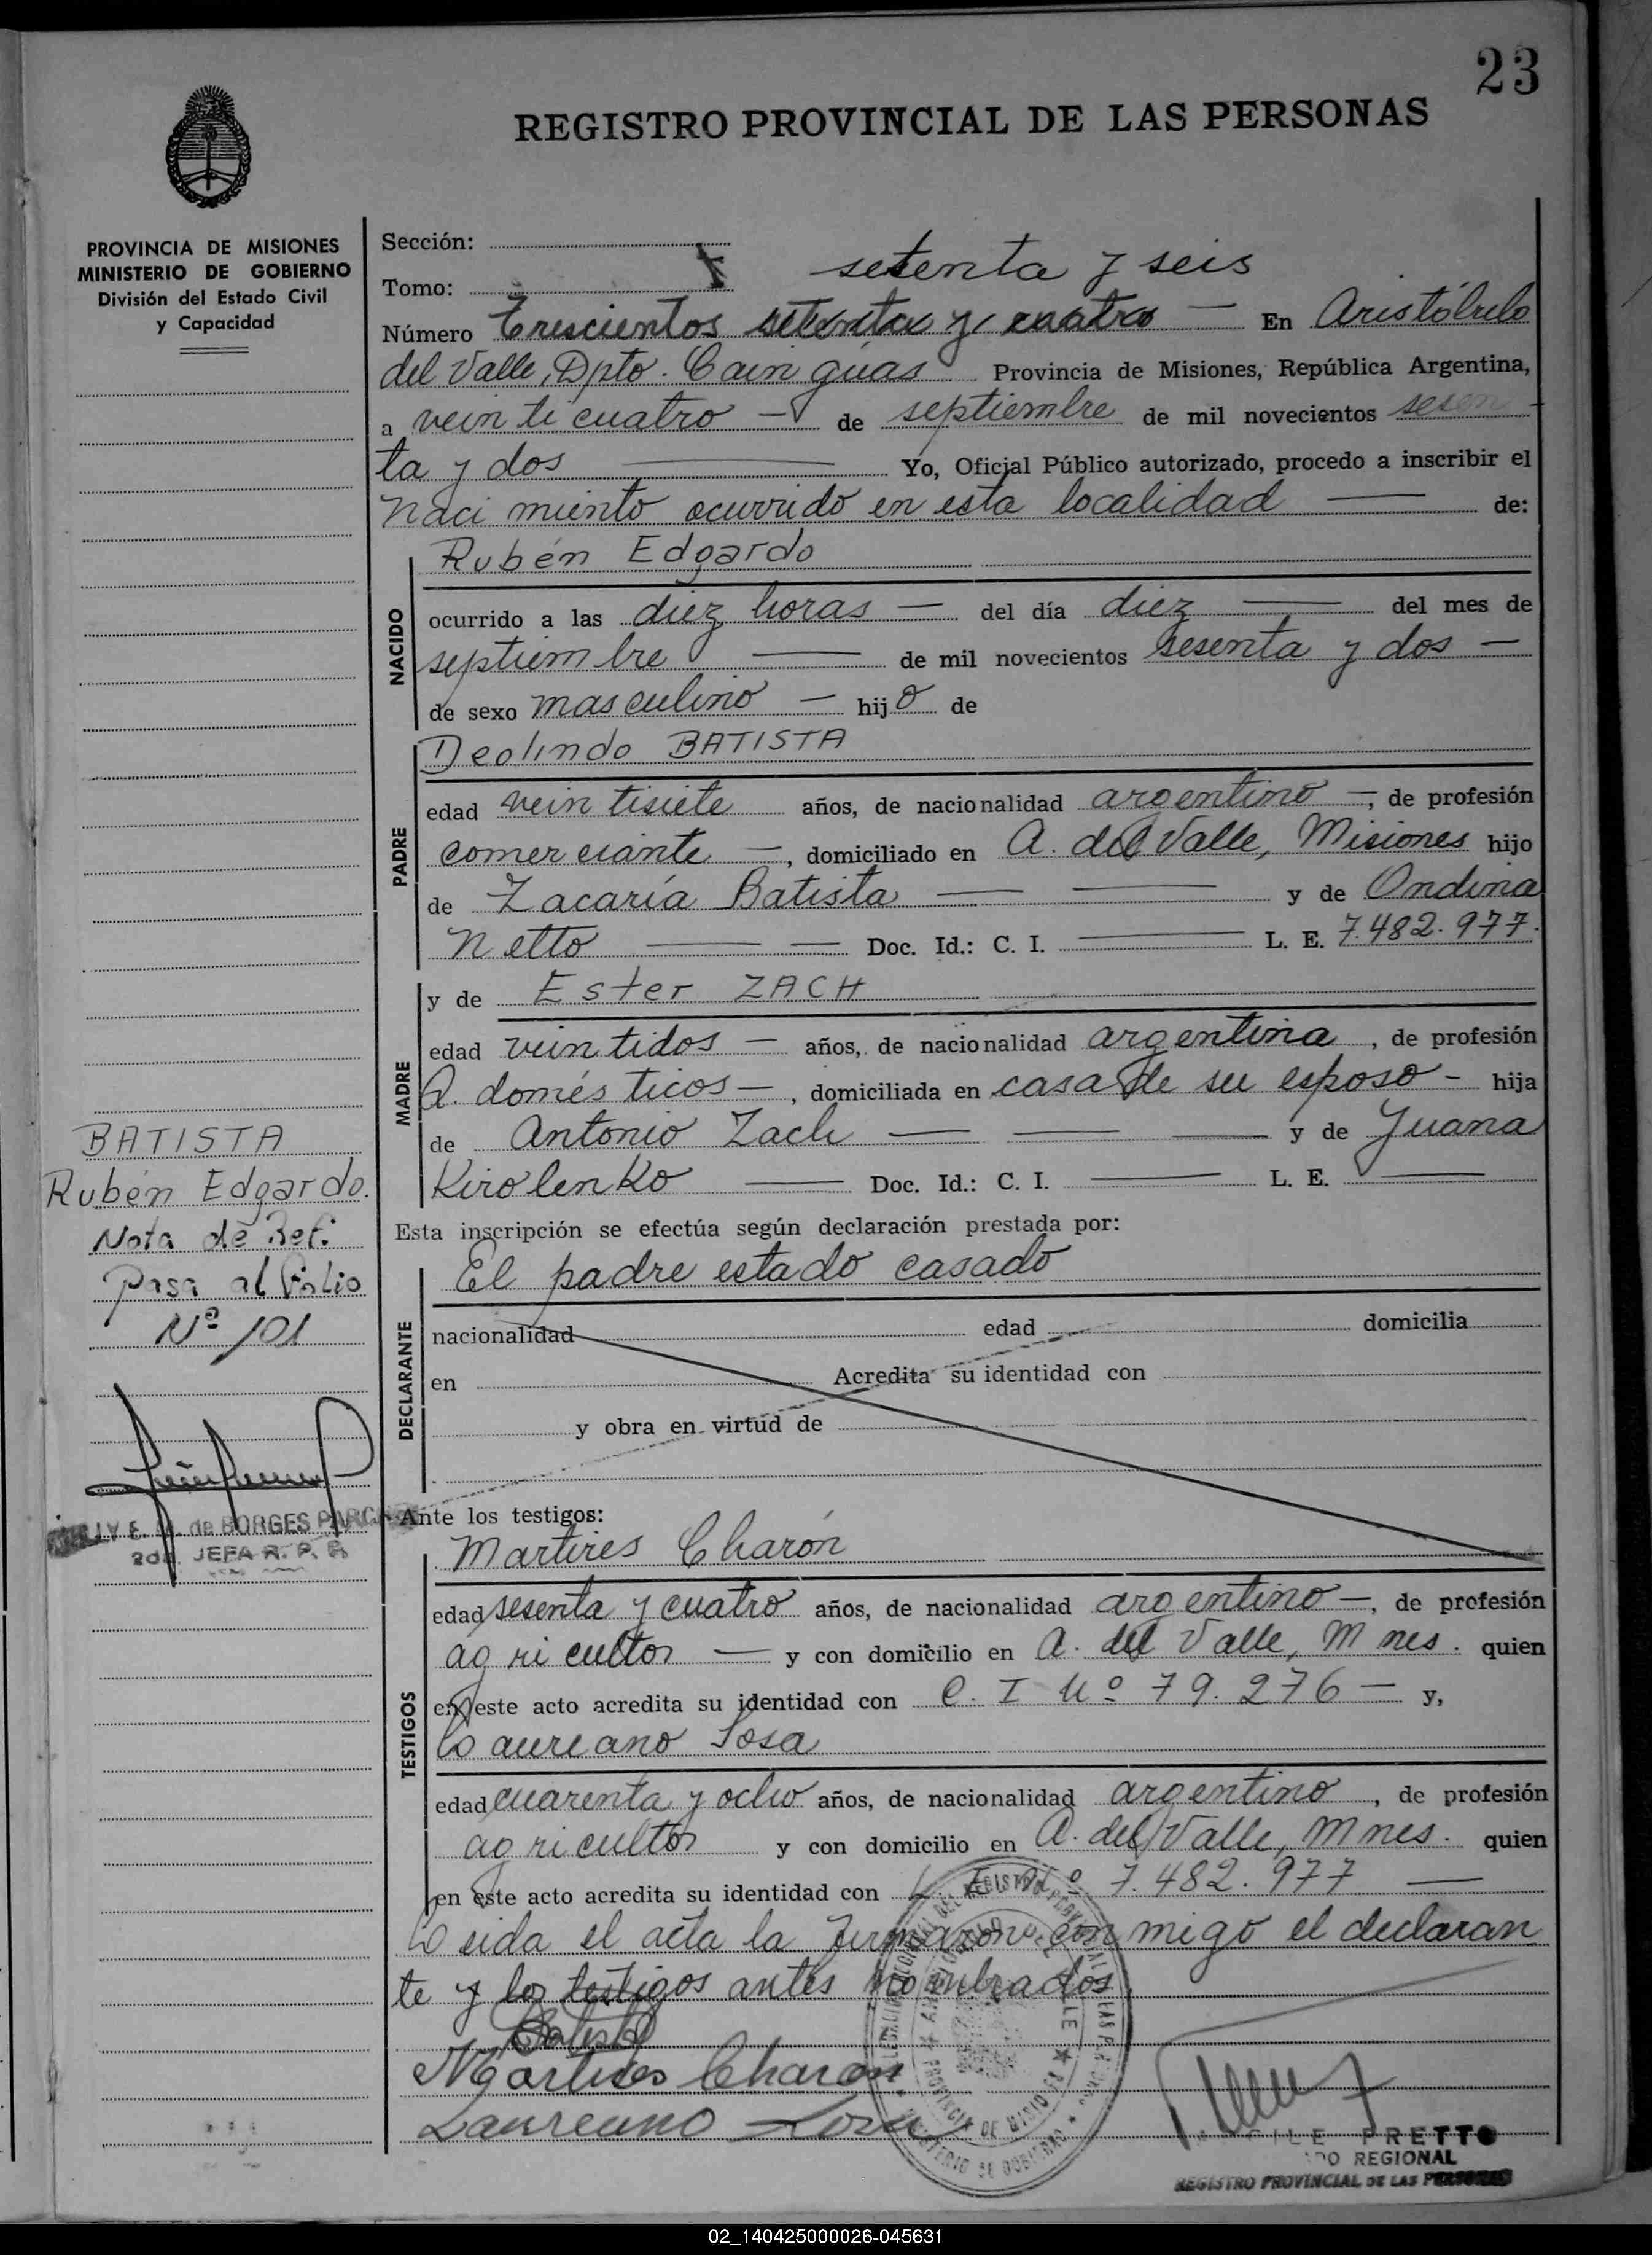 23
REGISTRO PROVINCIAL DE LAS PERSONAS
PROVINCIA DE MISIONES
MINISTERIO DE GOBIERNO
División del Estado Civil
y Capacidad
Sección:
Tomo:
setenta y seis
Número Trescientos setenta y cuatro — En Aristóbulo
del Valle, Dpto. Cainguás Provincia de Misiones, República Argentina,
a veinticuatro — de septiembre de mil novecientos sesen
ta y dos — Yo, Oficial Público autorizado, procedo a inscribir el
Nacimiento ocurrido en esta localidad — de:
NACIDO
Rubén Edgardo
ocurrido a las diez horas — del día diez — del mes de
septiembre — de mil novecientos sesenta y dos —
de sexo masculino — hijo de
PADRE
Deolindo BATISTA
edad veintisiete años, de nacionalidad argentino —, de profesión
comerciante —, domiciliado en A. del Valle, Misiones hijo
de Zacaría Batista — — y de Ondina
Netto — — Doc. Id.: C. I. — L. E. 7.482.977.
MADRE
y de Ester ZACH
edad veintidos — años, de nacionalidad argentina, de profesión
Q. domésticos —, domiciliada en casa de su esposo - hija
de Antonio Zach — — — y de Juana
Kirolenko — Doc. Id.: C. I. — L. E. —
Esta inscripción se efectúa según declaración prestada por:
DECLARANTE
El padre estado casado
nacionalidad edad domicilia
en Acredita su identidad con
y obra en virtud de
Ante los testigos:
TESTIGOS
Martires Charón
edad sesenta y cuatro años, de nacionalidad argentino —, de profesión
agricultor — y con domicilio en A. del Valle, Mnes. quien
en este acto acredita su identidad con C. I Nº 79.276 — y,
Laureano Sosa
edad cuarenta y ocho años, de nacionalidad argentino, de profesión
agricultor y con domicilio en A. del Valle, Mnes. quien
en este acto acredita su identidad con L. E. Nº 7.482.977 —
Leida el acta la firmaron conmigo el declaran
te y los testigos antes nombrados
Batista
Martires Charon
Laureano Sosa
BATISTA
Rubén Edgardo.
Nota de Ref:
Pasa al Folio
Nº 101
E. M. de BORGES
2da. JEFA R. P. P.
PRETTO
REGIONAL
REGISTRO PROVINCIAL DE LAS PERSONAS
02_140425000026-045631